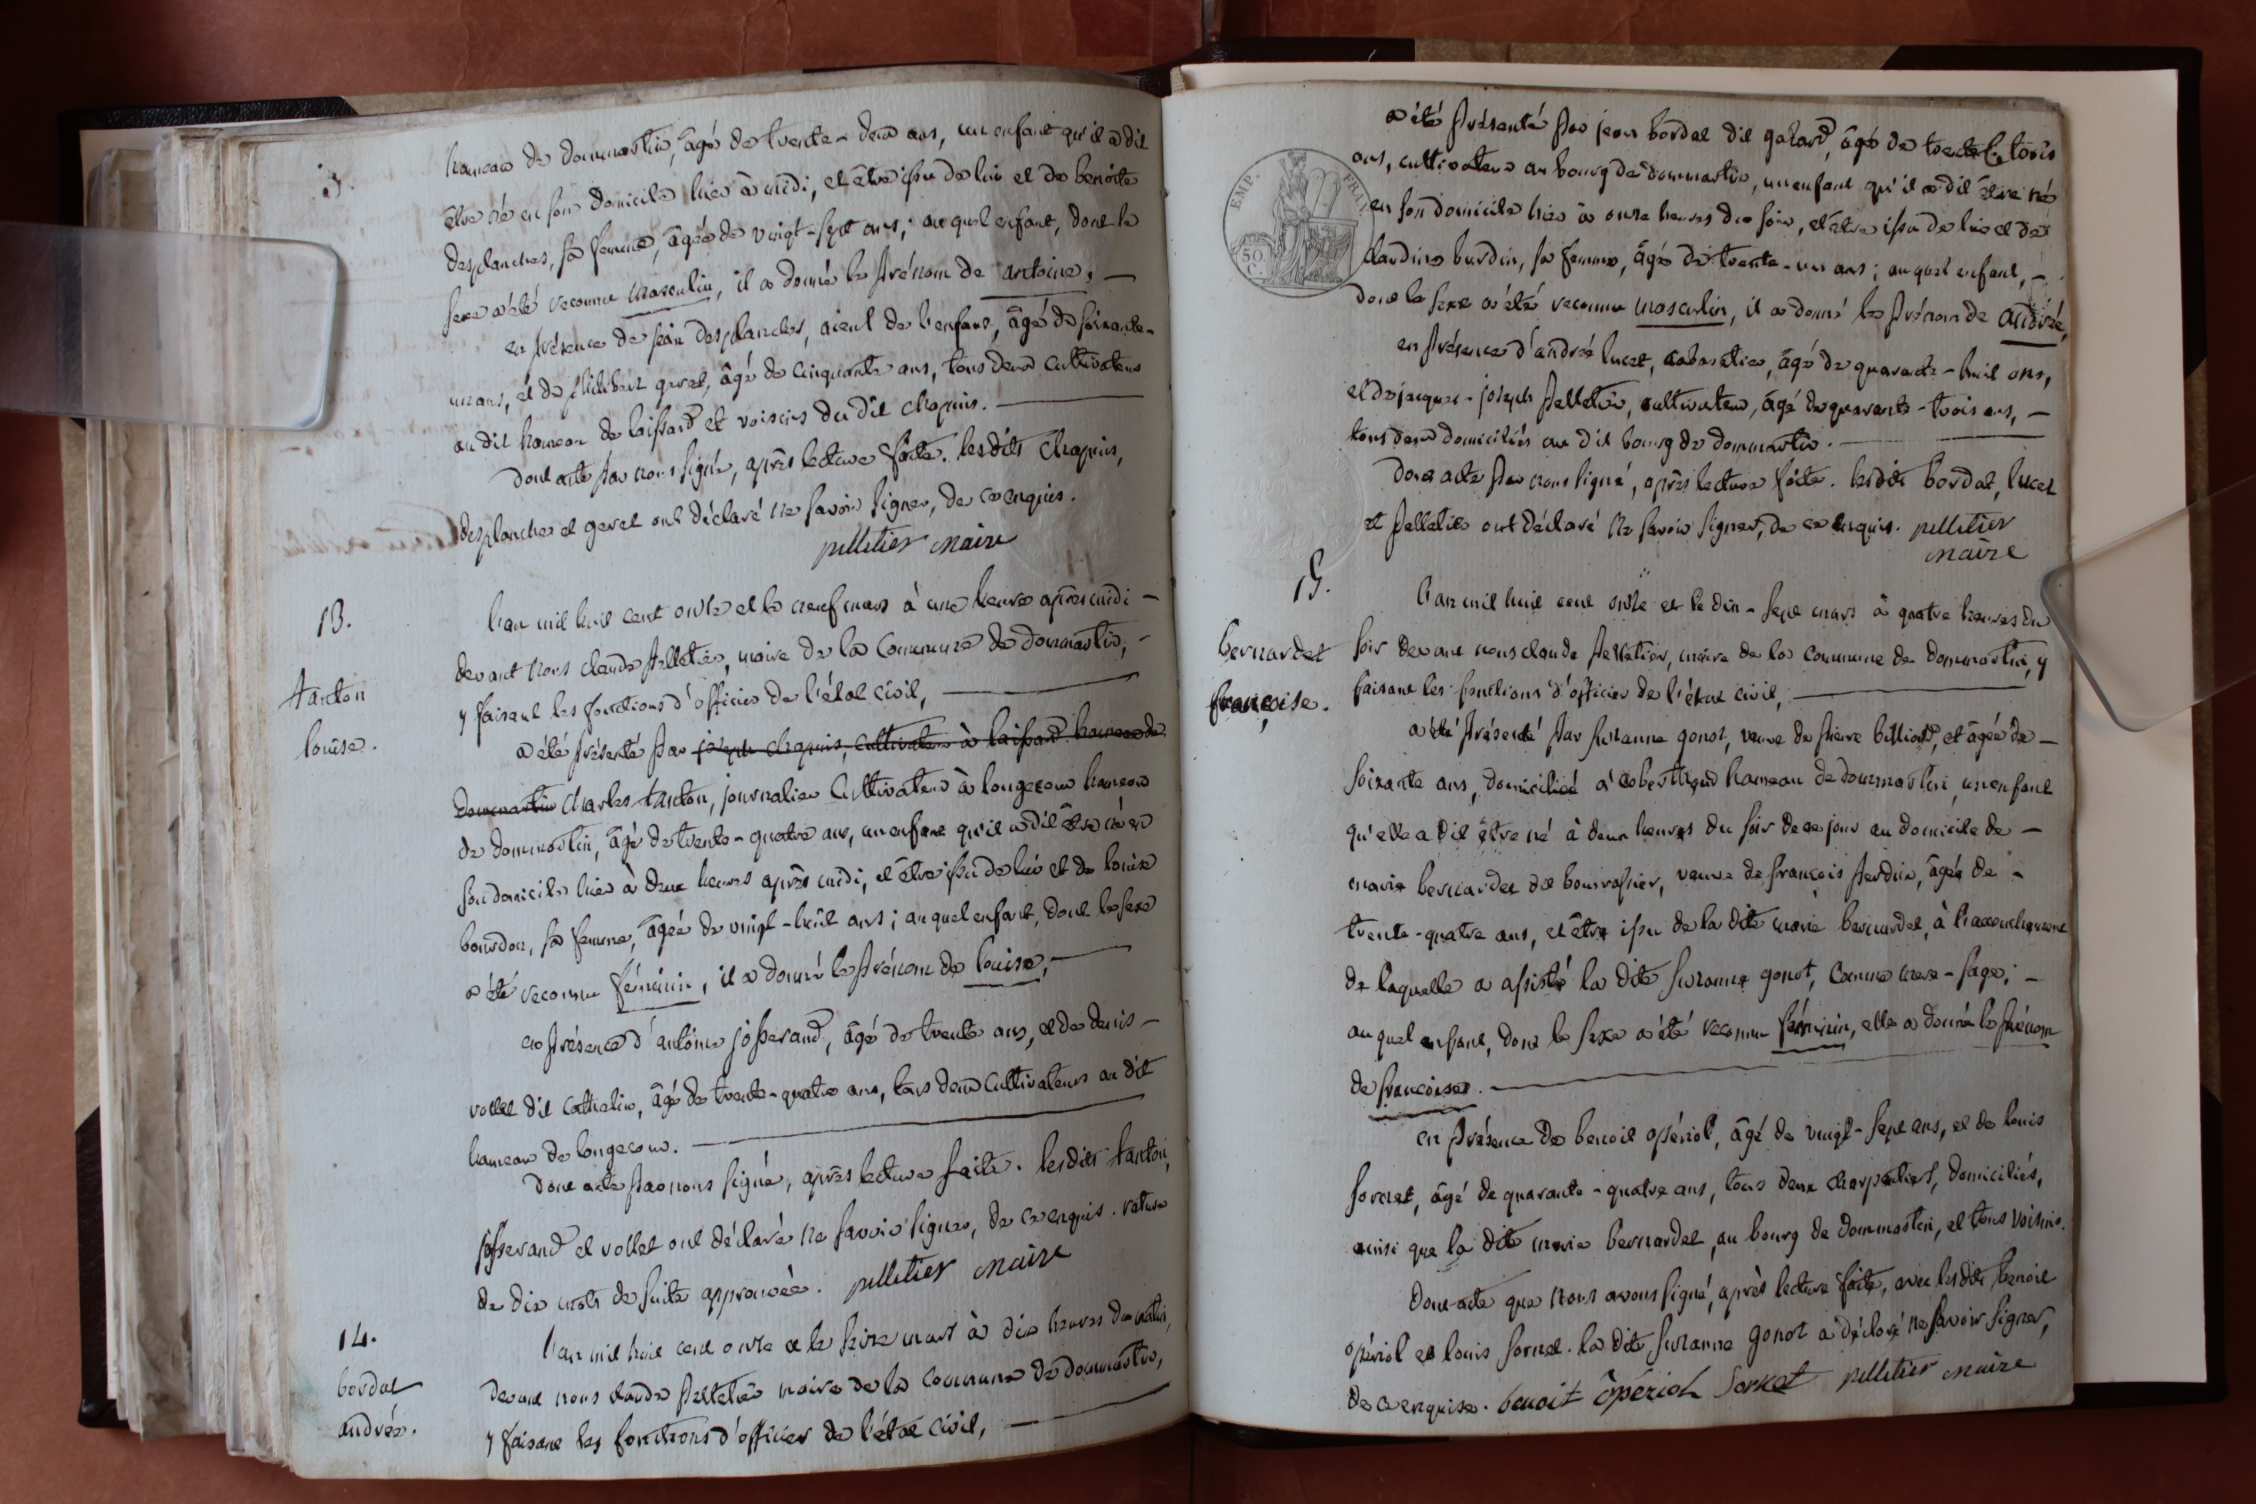 3.
hameau de dommartin, âgé de trente-deux ans, un enfant qu'il a dit
être né en son domicile hier à midi, et être issu de lui et de benoite
desplanches, sa femme, âgée de vingt-sept ans; auquel enfant, dont le
sexe a été reconnu masculin, il a donné le prénom de antoine, —
en présence de jean desplanches, aieul de l'enfant, âgé de soixante-
un ans, et de philibert geret, âgé de cinquante ans, tous deux cultivateurs
au dit hameau de laissard et voisins du dit chapuis. —
dont acte par nous signé, après lecture faite. lesdits chapuis,
desplanches et geret ont déclaré ne savoir signer, de ce enquis.
pelletier maire
13.
tanton
louise.
l'an mil huit cent onze et le neuf mars à une heure après midi —
devant nous claude pelletier, maire de la commune de dommartin, —
y faisant les fonctions d'officier de l'état civil, —
a été présenté par joseph chapuis, cultivateur à laissard hameau de
dommartin charles tanton, journalier cultivateur à longecour hameau
de dommartin, âgé de trente-quatre ans, un enfant qu'il a dit être né en
son domicile hier à deux heures après midi, et être issu de lui et de louise
bourdon, sa femme, âgée de vingt-huit ans; auquel enfant, dont le sexe
a été reconnu féminin, il a donné le prénom de louise, —
en présence d'antoine josserand, âgé de trente ans, et de denis —
vollet dit cathelin, âgé de trente-quatre ans, tous deux cultivateurs au dit
hameau de longecour. —
dont acte par nous signé, après lecture faite. lesdits tanton,
josserand et vollet ont déclaré ne savoir signer, de ce enquis. rature
de dix mots de suite approuvée. pelletier maire
14.
bordat
andré.
l'an mil huit cent onze et le seize mars à dix heures du matin,
devant nous claude pelletier maire de la commune de dommartin,
y faisant les fonctions d'officier de l'état civil, —
a été présenté par jean bordat dit galard, âgé de trente trois
ans, cultivateur au bourg de dommartin, un enfant qu'il a dit être né
en son domicile hier à onze heures du soir, et être issu de lui et de
claudine burdin, sa femme, âgé de trente-un ans; auquel enfant, —
dont le sexe a été reconnu masculin, il a donné le prénom de andré,
en présence d'andré lucet, cabaretier, âgé de quarante-huit ans,
et de jacques-joseph pelletier, cultivateur, âgé de quarante-trois ans, —
tous deux domiciliés au dit bourg de dommartin. —
dont acte par nous signé, après lecture faite. lesdits bordat, lucet
et pelletier ont déclaré ne savoir signer, de ce enquis. pelletier
maire
EMP. FRAN.
50 C.
15.
bernardet
françoise.
l'an mil huit cent onze et le dix-sept mars à quatre heures du
soir devant nous claude pelletier, maire de la commune de dommartin, y
faisant les fonctions d'officier de l'état civil, —
a été présenté par suzanne gonot, veuve de pierre billiard, et âgée de —
soixante ans, domiciliée à hameau de dommartin, un enfant
qu'elle a dit être né à deux heures du soir de ce jour au domicile de —
marie bernardet dit bourassier, veuve de françois perdin, âgée de —
trente-quatre ans, et être issu de la dite marie bernardet, à l'accouchement
de laquelle a assisté la dite suzanne gonot, comme mere-sage; —
auquel enfant, dont le sexe a été reconnu féminin, elle a donné le prénom
de françoise. —
en présence de benoit opériol, âgé de vingt-sept ans, et de louis
sornet, âgé de quarante-quatre ans, tous deux charpentiers, domiciliés,
ainsi que la dite marie bernardet, au bourg de dommartin, et tous voisins.
dont acte que nous avons signé, après lecture faite, avec lesdits benoit
opériol et louis sornet. la dite suzanne gonot a déclaré ne savoir signer,
de ce enquise. benoit ôpériol Sornet pelletier maire